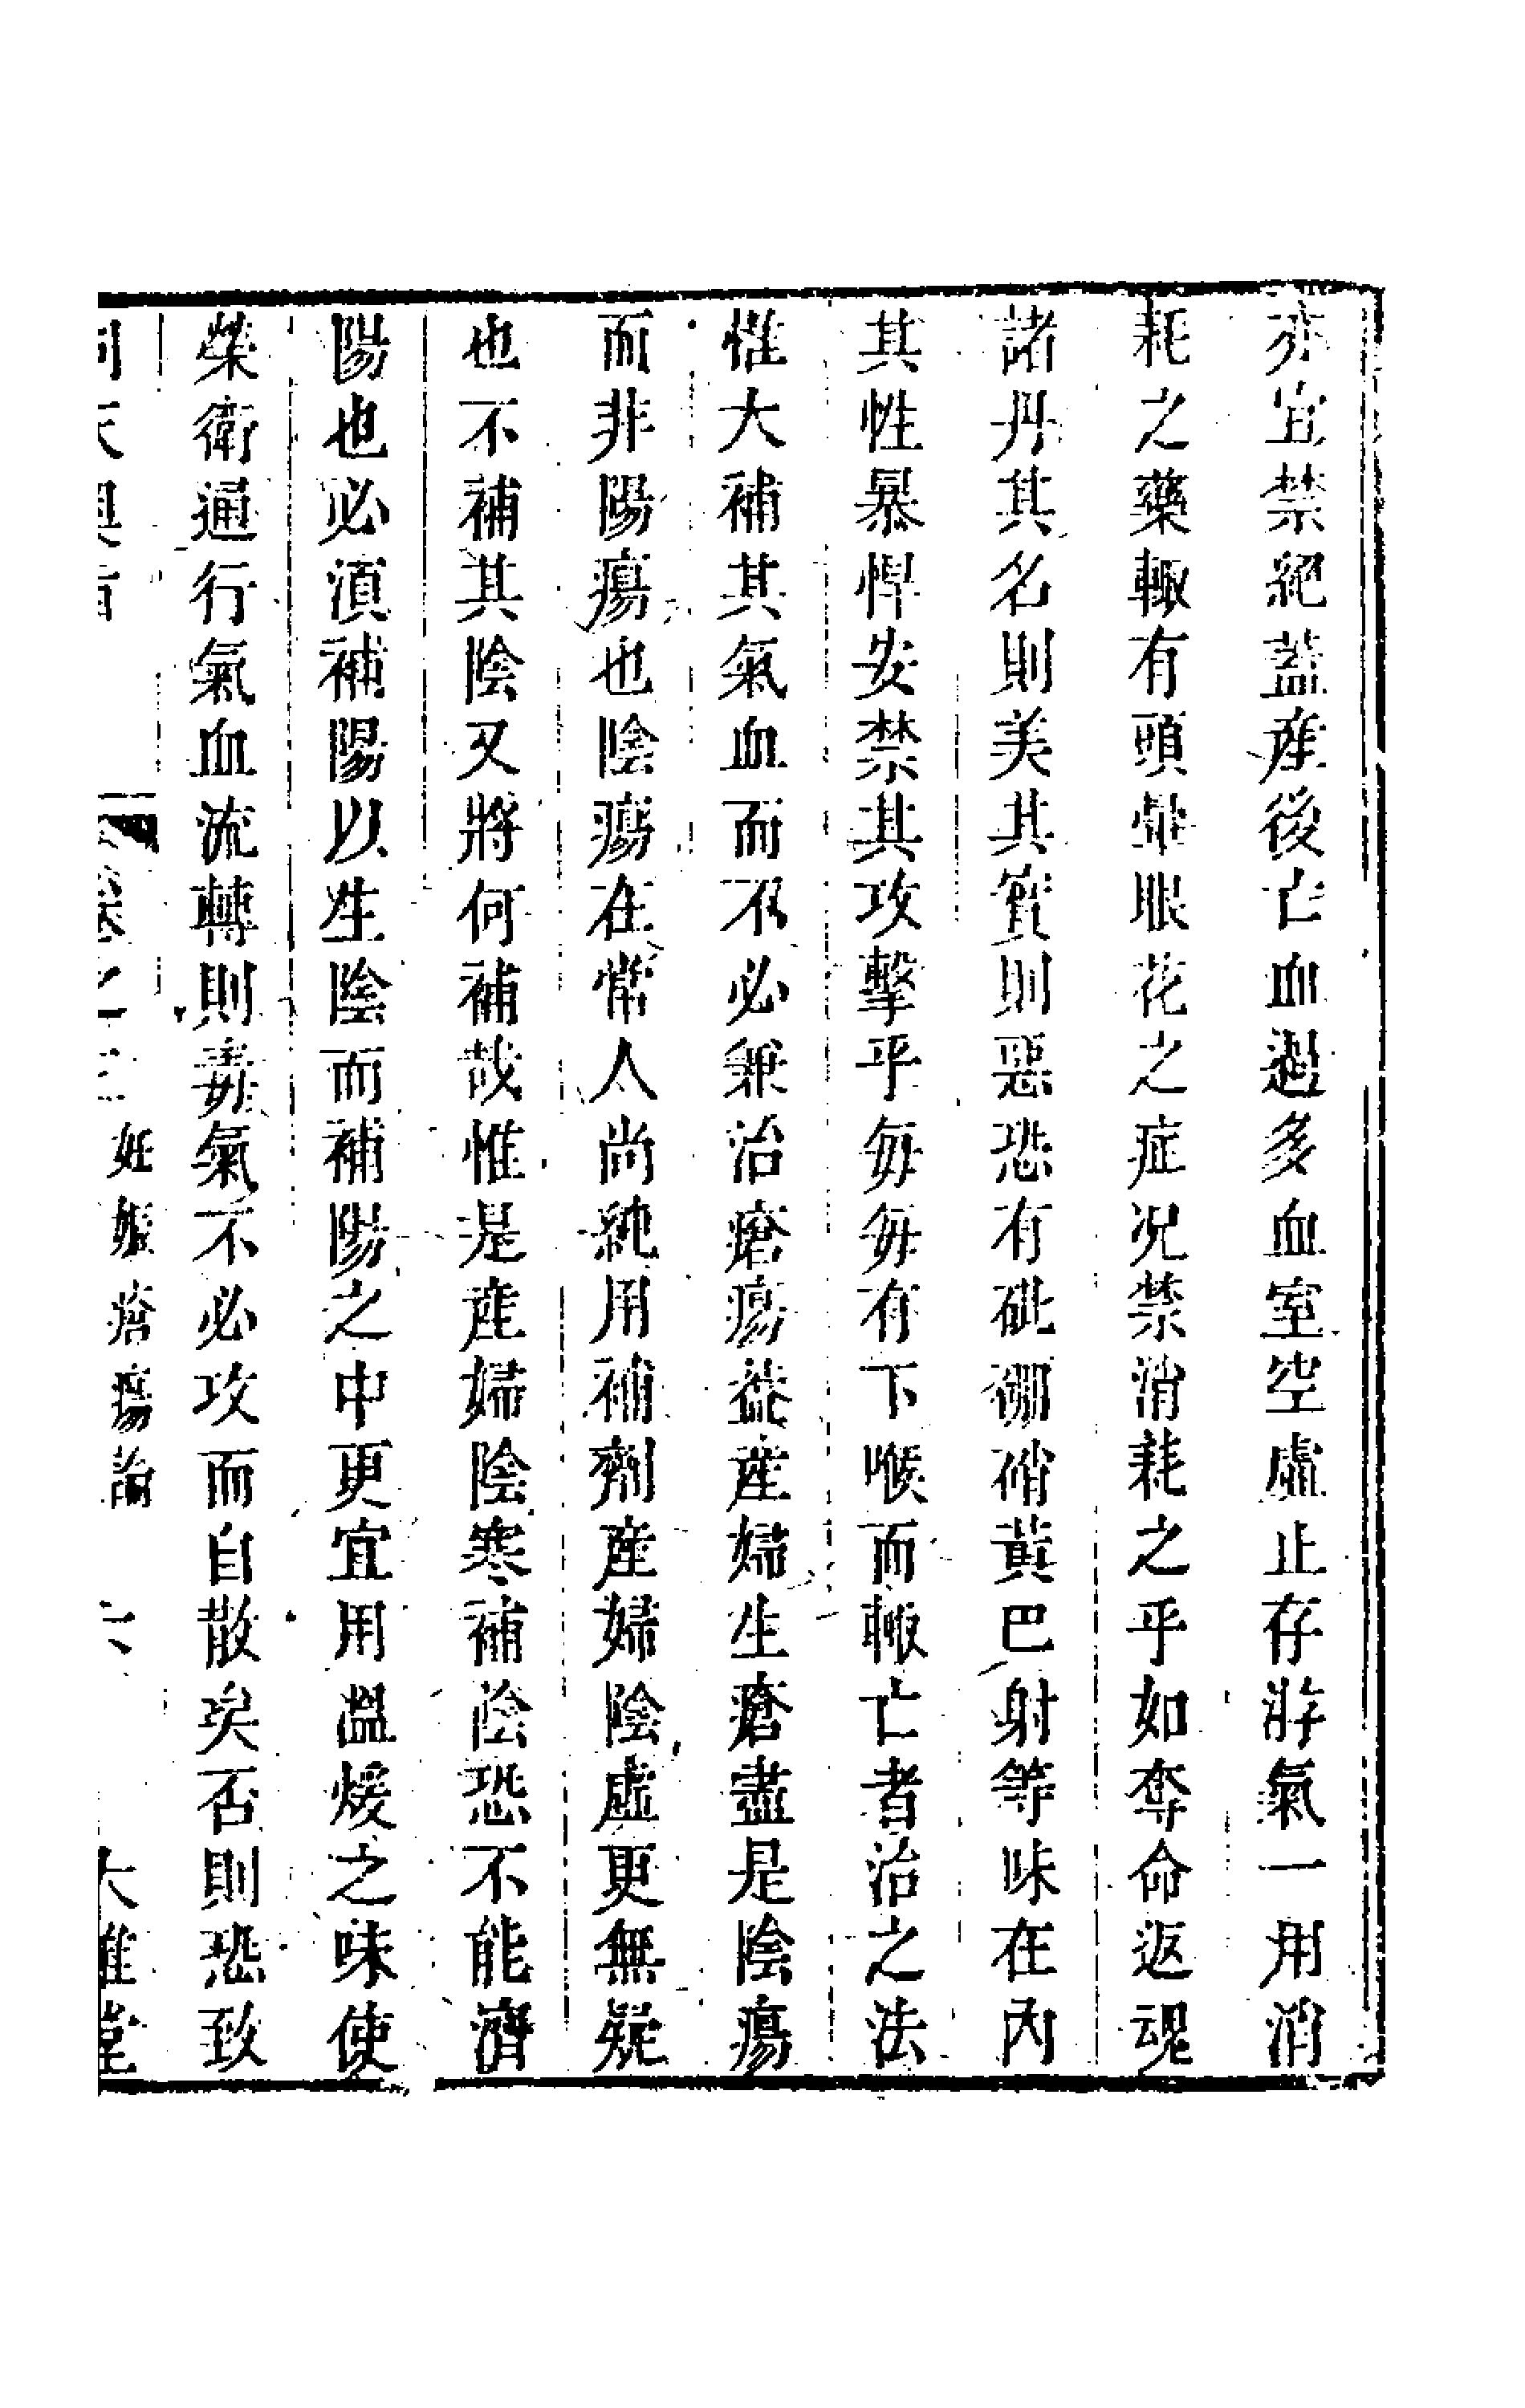 亦宜禁絕蓋產後亡血過多血室空虛止存游氣一用消
耗之藥輙有頭暈眼花之症况禁消耗之乎如奪命返魂
諸丹其名則美其實則惡恐有砒硼硝黃巴射等味在內
其性暴悍安禁其攻擊乎每每有下喉而輙亡者治之法
惟大補其氣血而不必兼治瘡瘍葢產婦生瘡盡是陰瘍
而非陽瘍也陰瘍在常人尚純用補劑產婦陰虛更無疑
也不補其陰又將何補哉惟是產婦陰寒補陰恐不能濟
陽也必湏補陽以生陰而補陽之中更宜用溫煖之味使
榮衛通行氣血流轉則毒氣不必攻而自散矣否則恐致
洞天奥旨 卷之三 妊娠瘡瘍論 六 大雅堂